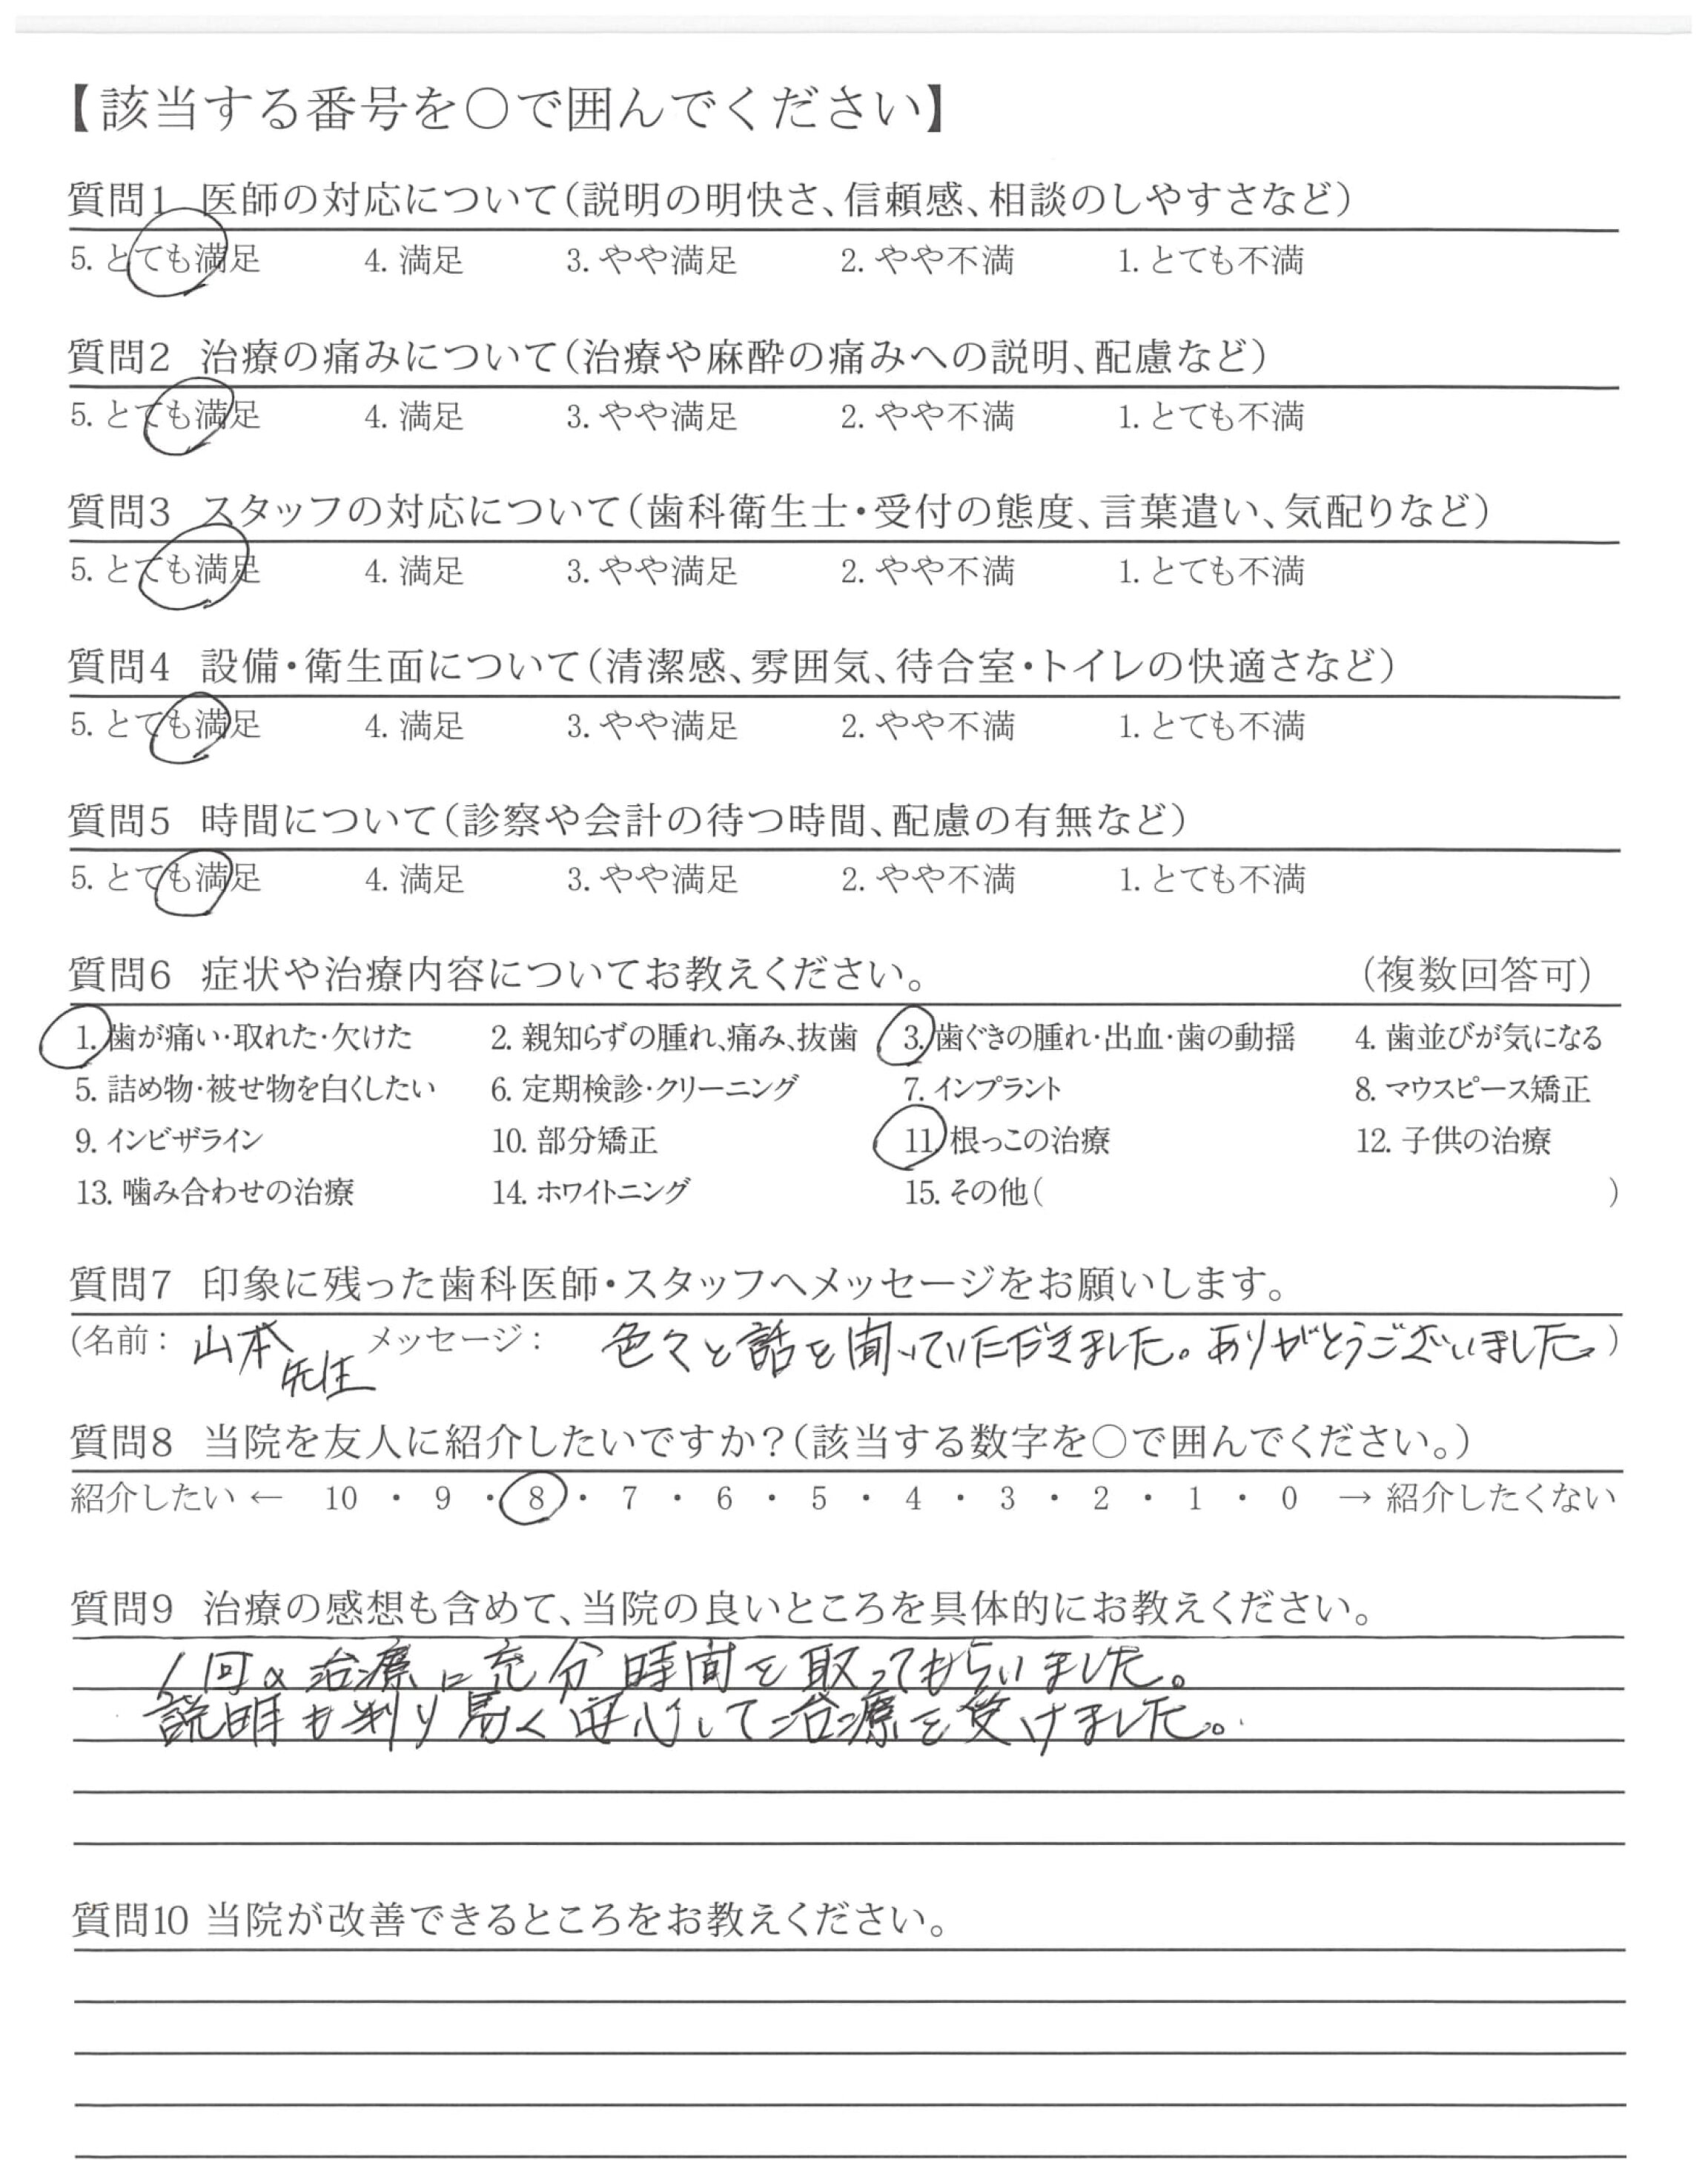 【該当する番号を○で囲んでください】
質問1 医師の対応について(説明の明快さ、信頼感、相談のしやすさなど)
5. とても満足 4. 満足 3. やや満足 2. やや不満 1. とても不満
質問2 治療の痛みについて(治療や麻酔の痛みへの説明、配慮など)
5. とても満足 4. 満足 3. やや満足 2. やや不満 1. とても不満
質問3 スタッフの対応について(歯科衛生士・受付の態度、言葉遣い、気配りなど)
5. とても満足 4. 満足 3. やや満足 2. やや不満 1. とても不満
質問4 設備・衛生面について(清潔感、雰囲気、待合室・トイレの快適さなど)
5. とても満足 4. 満足 3. やや満足 2. やや不満 1. とても不満
質問5 時間について(診察や会計の待つ時間、配慮の有無など)
5. とても満足 4. 満足 3. やや満足 2. やや不満 1. とても不満
質問6 症状や治療内容についてお教えください。 (複数回答可)
1. 歯が痛い・取れた・欠けた 2. 親知らずの腫れ、痛み、抜歯 3. 歯ぐきの腫れ・出血・歯の動揺 4. 歯並びが気になる
5. 詰め物・被せ物を白くしたい 6. 定期検診・クリーニング 7. インプラント 8. マウスピース矯正
9. インビザライン 10. 部分矯正 11. 根っこの治療 12. 子供の治療
13. 噛み合わせの治療 14. ホワイトニング 15. その他( )
質問7 印象に残った歯科医師・スタッフへメッセージをお願いします。
(名前: 山本先生 メッセージ: 色々と話を聞いていただきました。ありがとうございました。)
質問8 当院を友人に紹介したいですか?(該当する数字を○で囲んでください。)
紹介したい ← 10 ・ 9 ・ 8 ・ 7 ・ 6 ・ 5 ・ 4 ・ 3 ・ 2 ・ 1 ・ 0 → 紹介したくない
質問9 治療の感想も含めて、当院の良いところを具体的にお教えください。
1回の治療に充分時間を取ってもらいました。
説明も判り易く安心して治療を受けました。
質問10 当院が改善できるところをお教えください。